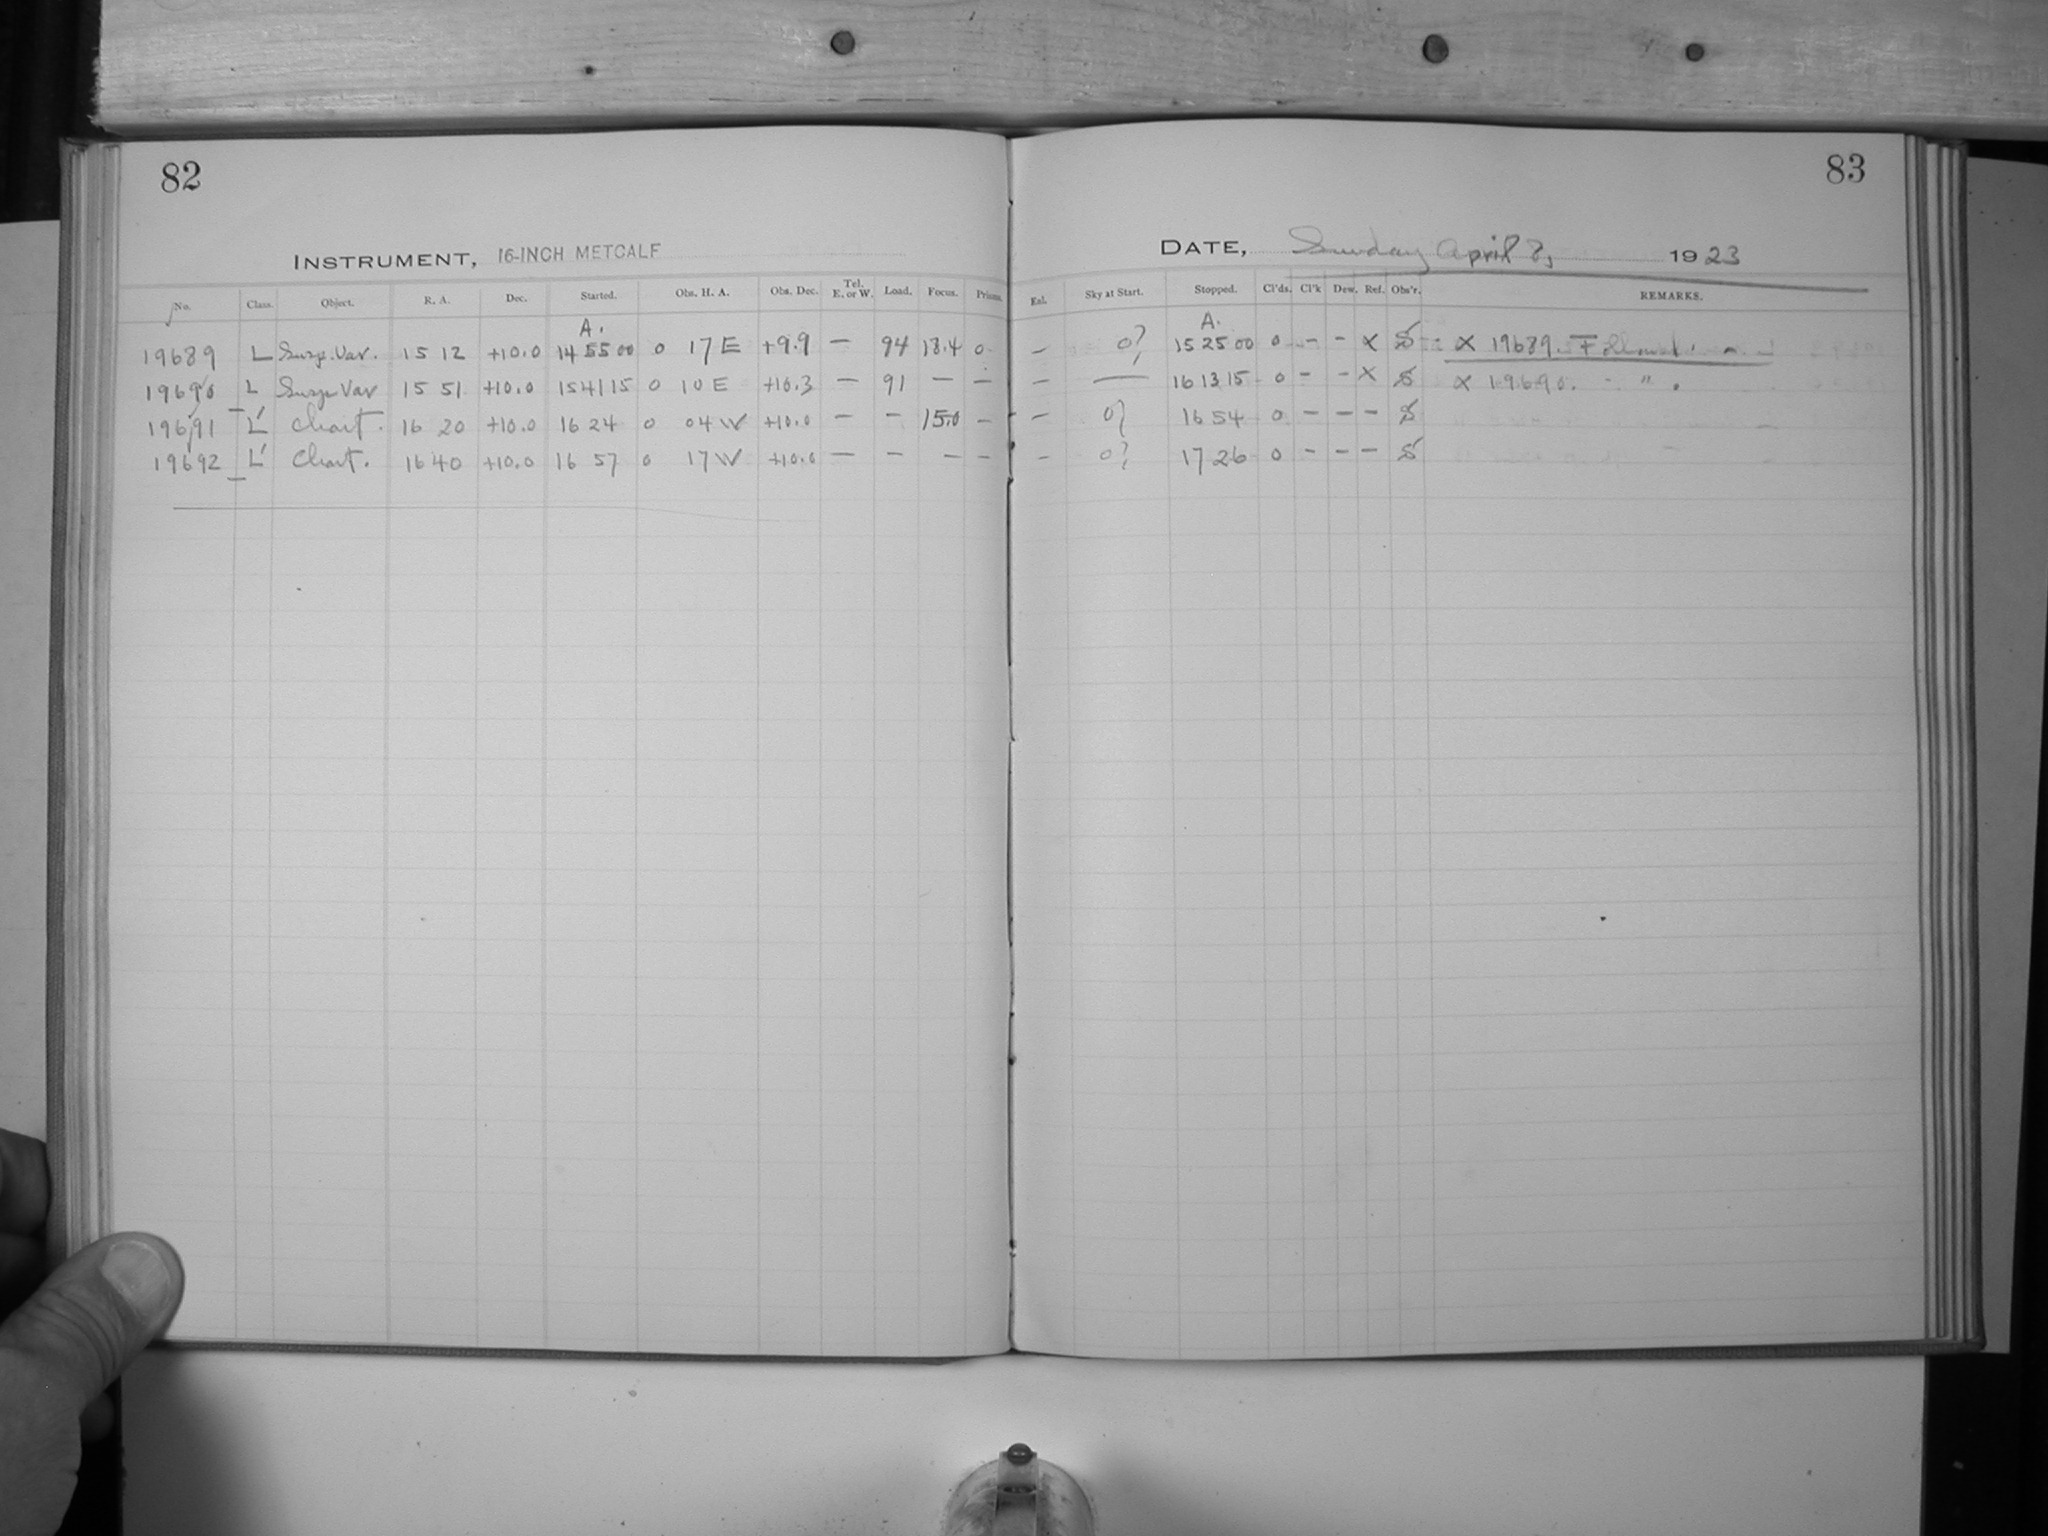 82
83
INSTRUMENT, 16-INCH METCALF
DATE, Sunday April 8, 1923
No. Class. Object. R. A. Dec. Started. Obs. H. A. Obs. Dec. Tel. E. or W. Load. Focus. Prisms. Exl. Sky at Start. Stopped. Cl'ds. Cl'k Dew. Ref. Obs'r. REMARKS.
A. A.
19689 L Susp. Var. 15 12 +10.0 14 55 00 0 17 E +9.9 — 94 13.4 0 — 0? 15 25 00 0 - - X S X 19689.
19690 L Susp Var 15 51 +10.0 15 41 15 0 10 E +10.3 — 91 — — — — 16 13 15 0 - - X S X 19690. - " .
19691 L' Chart. 16 20 +10.0 16 24 0 04 W +10.0 — — 15.0 — — 0? 16 54 0 - - - S
19692 L' Chart. 16 40 +10.0 16 57 0 17 W +10.0 — — — — — 0? 17 26 0 - - - S